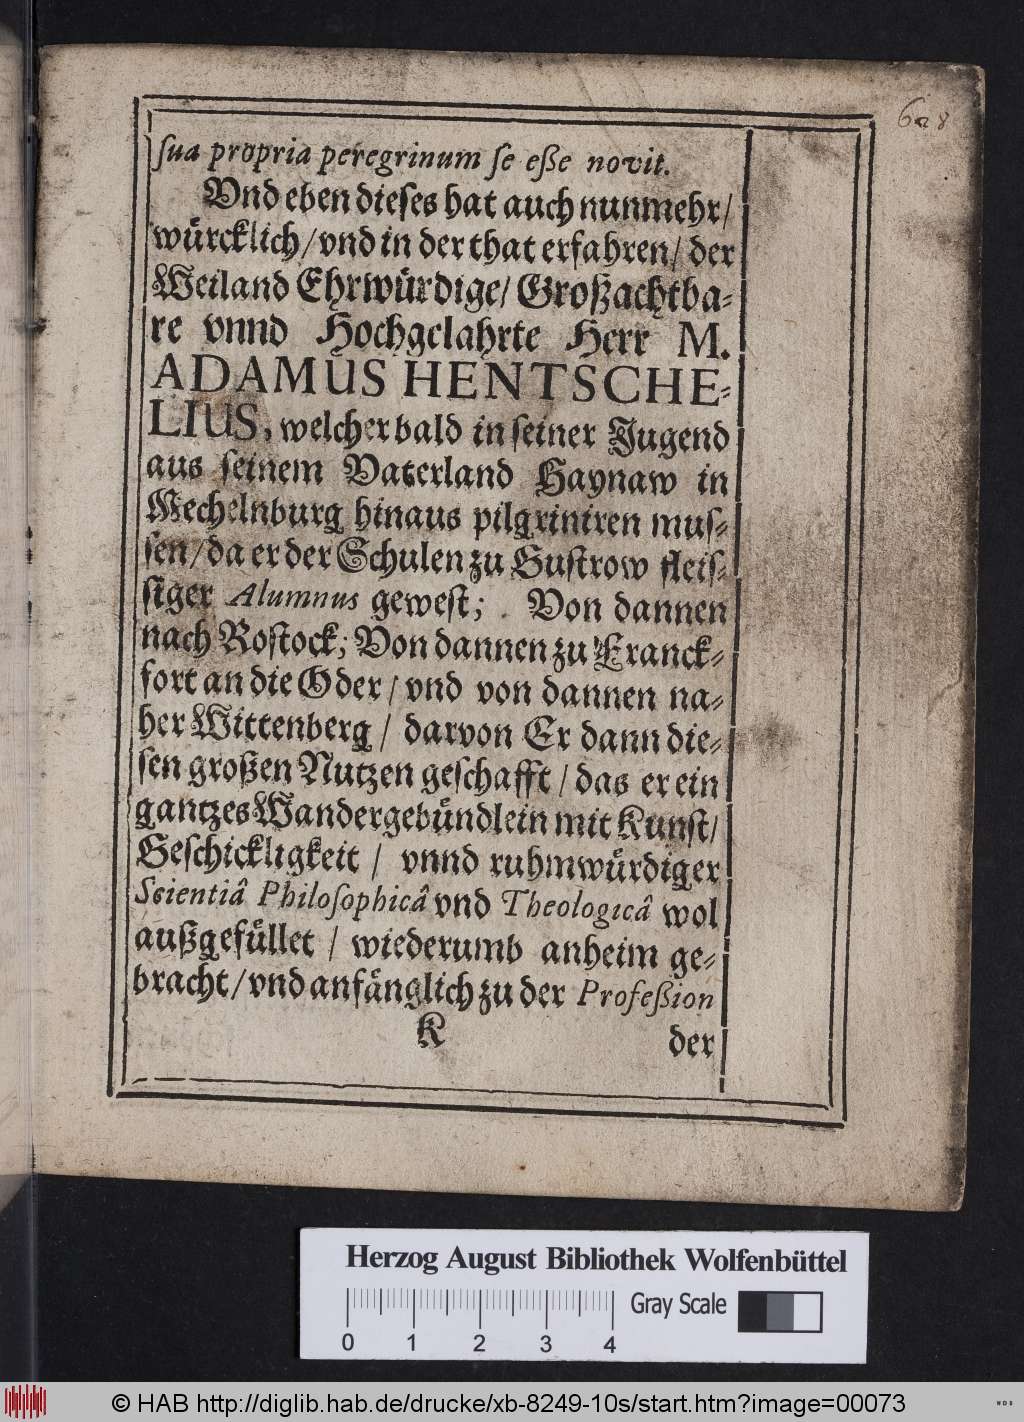 628
ſua propria peregrinum ſe eße novit.
Vnd eben dieſes hat auch nunmehr/
würcklich/vnd in der that erfahren/ der
Weiland Ehrwürdige/ Großachtba⸗
re vnnd Hochgelahrte Herr M.
ADAMUS HENTSCHE⸗
LIUS, welcher bald in ſeiner Jugend
aus ſeinem Vaterland Haynaw in
Mechelnburg hinaus pilgriniren muſ⸗
ſen/da er der Schulen zu Guſtrow fleiſ⸗
ſiger Alumnus geweſt; Von dannen
nach Roſtock; Von dannen zu Franck⸗
fort an die Oder/ vnd von dannen na⸗
her Wittenberg / darvon Er dann die⸗
ſen großen Nutzen geſchafft / das er ein
gantzes Wandergebündlein mit Kunſt/
Geſchickligkeit / vnnd ruhmwürdiger
Scientiâ Philoſophicâ vnd Theologicâ wol
außgefüllet / wiederumb anheim ge⸗
bracht/vnd anfänglich zu der Profeßion
K der
Herzog August Bibliothek Wolfenbüttel
Gray Scale
0 1 2 3 4
© HAB http://diglib.hab.de/drucke/xb-8249-10s/start.htm?image=00073
WDB